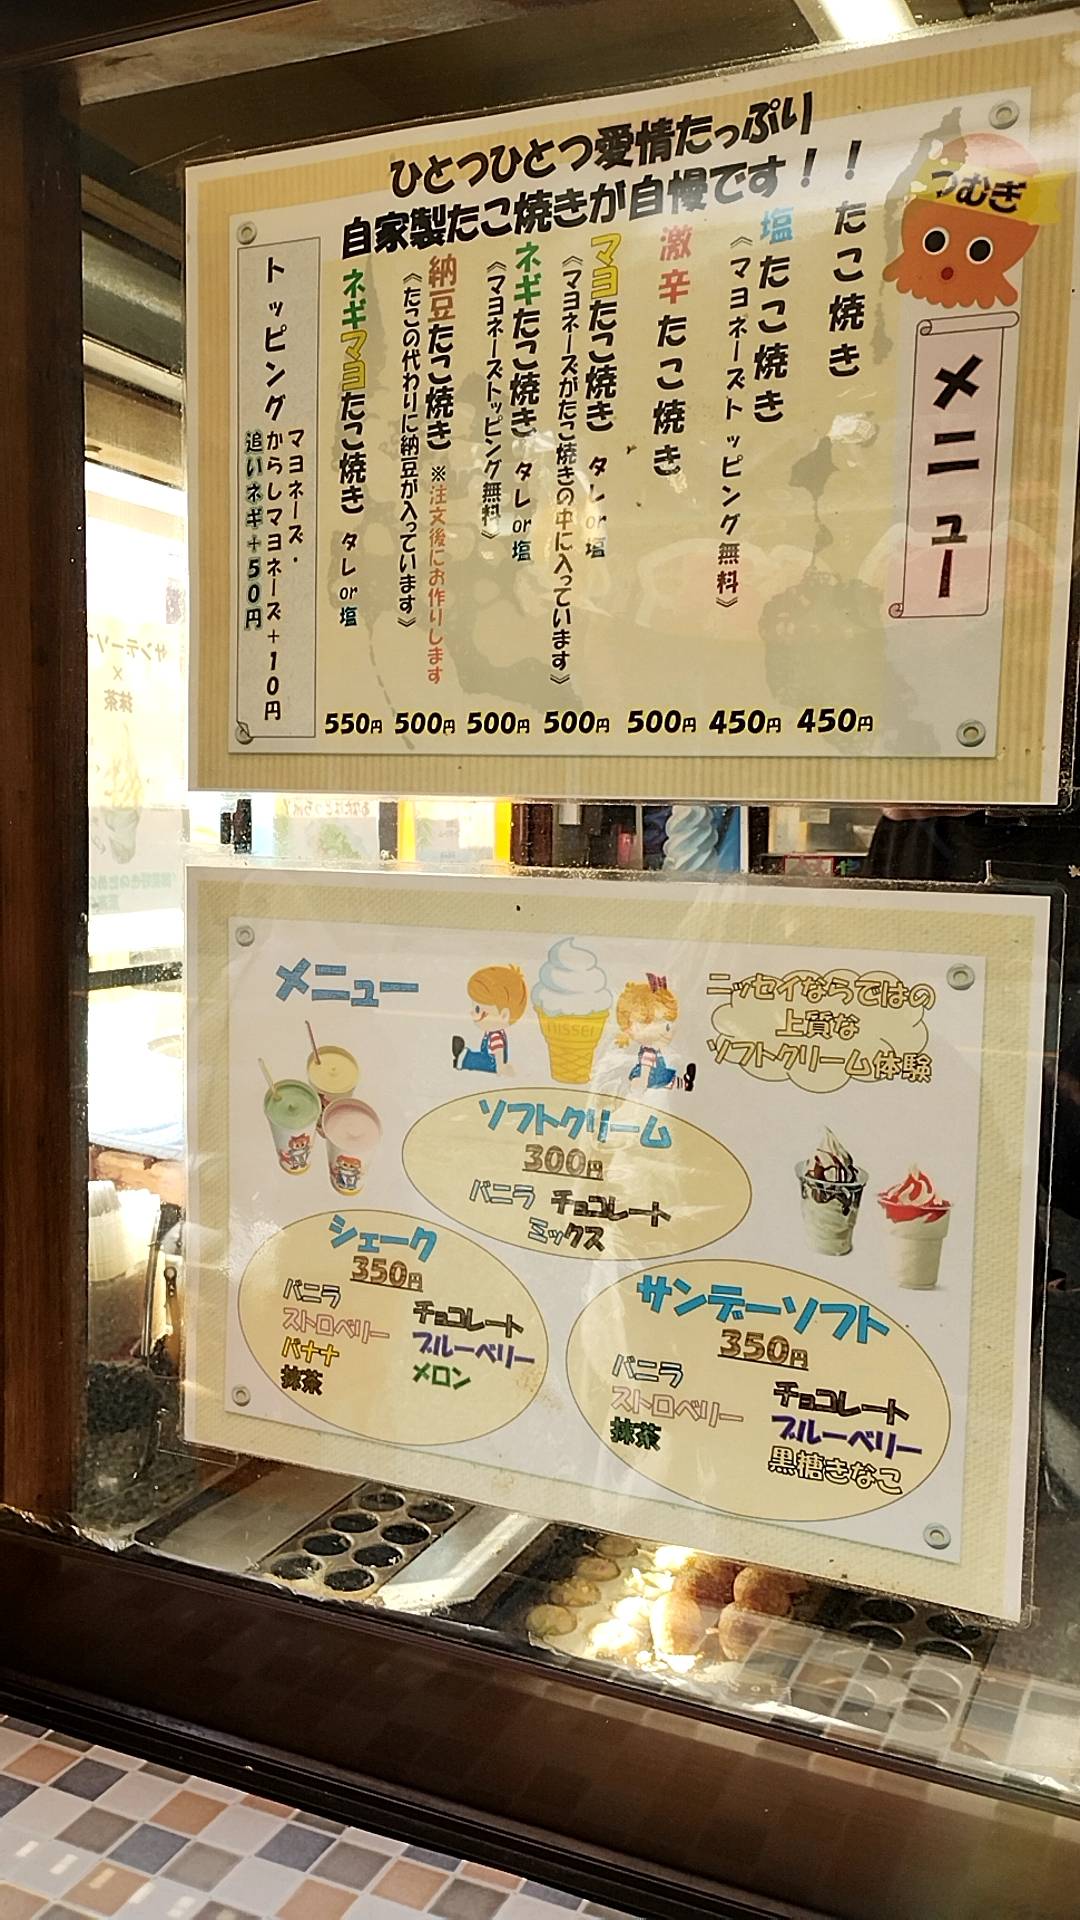 ひとつひとつ愛情たっぷり
自家製たこ焼きが自慢です！！
つむぎ
メニュー
たこ焼き
450円
塩たこ焼き
《マヨネーズトッピング無料》
450円
激辛たこ焼き
500円
マヨたこ焼き タレor塩
《マヨネーズがたこ焼きの中に入っています》
500円
ネギたこ焼き タレor塩
《マヨネーズトッピング無料》
500円
納豆たこ焼き ※注文後にお作りします
《たこの代わりに納豆が入っています》
500円
ネギマヨたこ焼き タレor塩
550円
トッピング
マヨネーズ・
からしマヨネーズ+10円
追いネギ+50円
メニュー
NISSEI
ニッセイならではの
上質な
ソフトクリーム体験
ソフトクリーム
300円
バニラ チョコレート
ミックス
シェーク
350円
バニラ
ストロベリー
バナナ
抹茶
チョコレート
ブルーベリー
メロン
サンデーソフト
350円
バニラ
ストロベリー
抹茶
チョコレート
ブルーベリー
黒糖きなこ